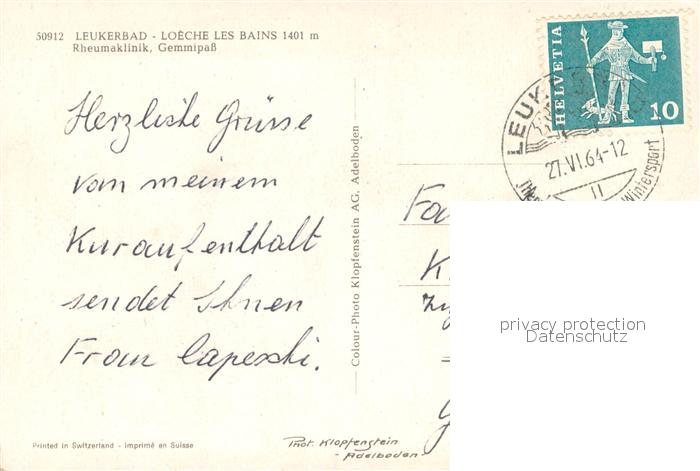 50912 LEUKERBAD - LOÈCHE LES BAINS 1401 m
Rheumaklinik, Gemmipaß
HELVETIA
10
27.VI.64-12
Wintersport
Herzliche Grüsse
von meinem
Kuraufenthalt
sendet Ihnen
Frau
Colour-Photo Klopfenstein AG, Adelboden
privacy protection
Datenschutz
Printed in Switzerland - Imprimé en Suisse
Phot. Klopfenstein
- Adelboden -